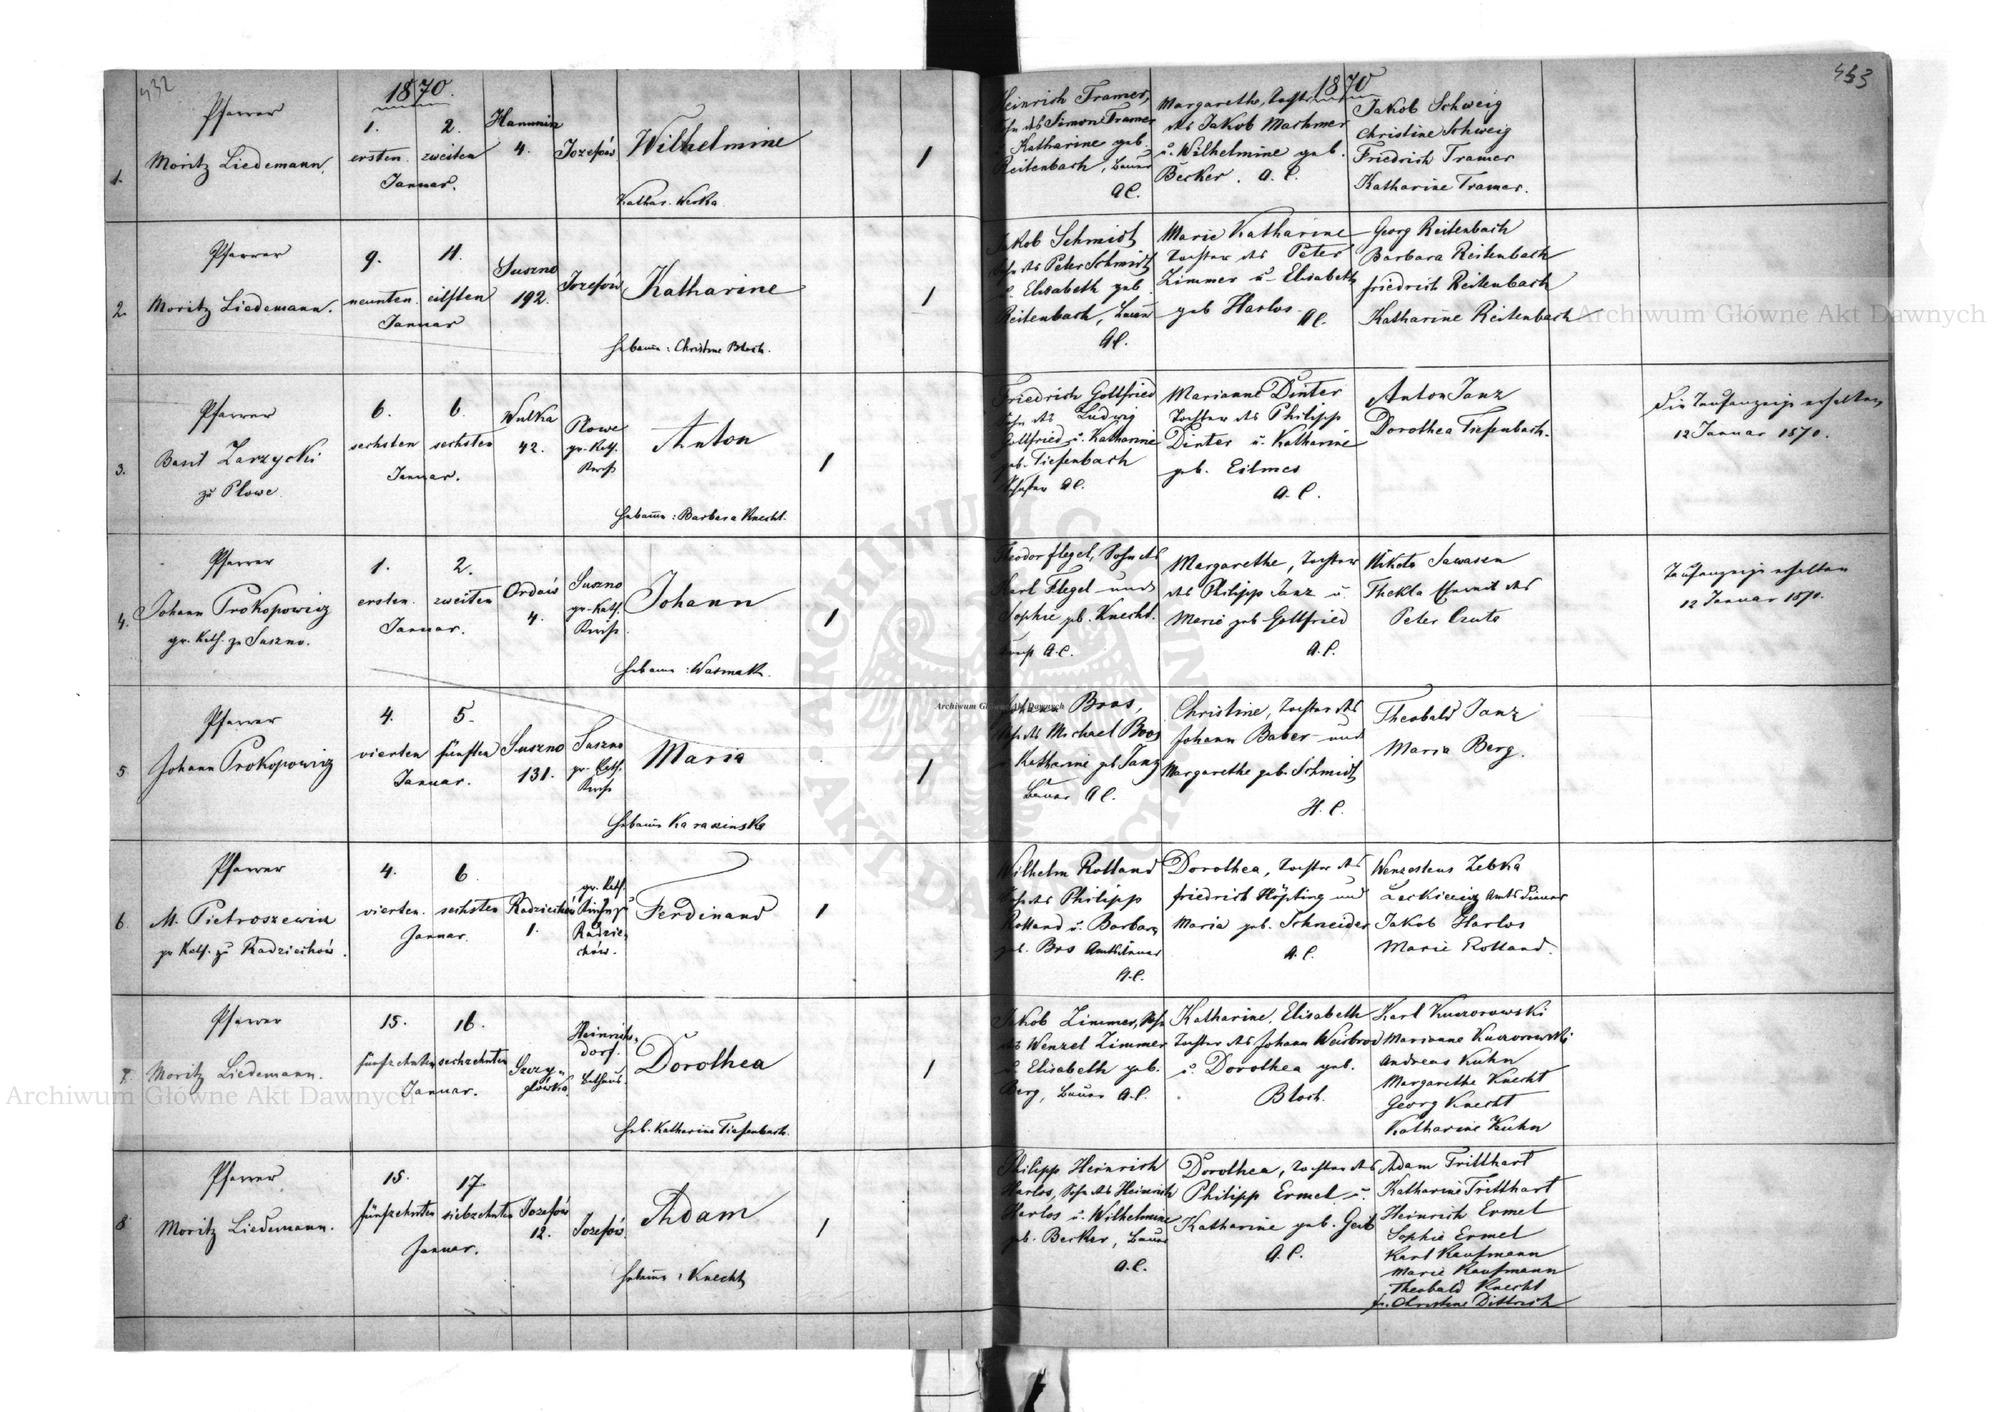 432
1870.
1.
Pfarrer
Moritz Liedemann.
1.
ersten
2.
zweiten
Januar.
Hanunin
4.
Jozefów
Wilhelmine
Kathar. Werka
1
2.
Pfarrer
Moritz Liedemann.
9.
neunten
11.
eilften
Januar
Suszno
192.
Jozefów
Katharine
Hebamme: Christine Bloch.
1
3.
Pfarrer
Basil Zarzycki
zu Plowe
6.
sechsten
6.
sechsten
Januar.
Wulka
42.
Plowe
gr. Kath.
Kirche
Anton
Hebamme: Barbara Knecht.
1
4.
Pfarrer
Johann Prokopowicz
gr. Kath. zu Suszno.
1.
ersten
2.
zweiten
Januar.
Ordów
4.
Suszno
gr. Kath.
Kirche
Johann
Hebamme: Wasmak.
1
5
Pfarrer
Johann Prokopowicz
4.
vierten
5.
fünften
Januar.
Suszno
131.
Suszno
gr. Kath.
Kirche
Maria
Hebamme Karasinska
1
6
Pfarrer
M. Pietroszewicz
gr. Kath. zu Radziechów.
4.
vierten.
6.
sechsten
Januar.
Radziechów
1.
gr. Kath.
Kirche zu
Radzie-
chów.
Ferdinand
1
7.
Pfarrer
Moritz Liedemann.
15.
fünfzehnten
16.
sechzehnten
Januar.
Szczy-
glówka
Heinrichs-
dorf.
Bethaus.
Dorothea
Heb. Katharine Tiefenbach.
1
8
Pfarrer
Moritz Liedemann.
15.
fünfzehnten
17.
siebzehnten
Januar.
Jozefów
12.
Jozefów
Adam
Hebamme: Knecht
1
433
1870
Heinrich Tramer,
Sohn des Simon Tramer
Katharine geb.
Reitenbach, Bauer
A.C.
Margarethe, Tochter
des Jakob Machmer
u. Wilhelmine geb.
Becker. A. C.
Jakob Schweig
Christine Schweig
Friedrich Tramer
Katharine Tramer.
Jakob Schmidt
Sohn des Peter Schmidt
u. Elisabeth geb.
Reitenbach, Bauer
A.C.
Marie Katharine
Tochter des Peter
Zimmer u. Elisabeth
geb Harlos. A.C.
Georg Reitenbach
Barbara Reitenbach
Friedrich Reitenbach
Katharine Reitenbach
Friedrich Gottfried
Sohn des Ludwig
Gottfried u. Katharine
geb. Tiefenbach
A.C.
Marianne Dinter
Tochter des Philipp
Dinter u. Katharine
geb. Eilmes
A. C.
Anton Janz
Dorothea Tiefenbach.
die Taufanzeige erhalten
12 Januar 1870.
Theodor Flegel, Sohn des
Karl Flegel und
Sophie geb. Knecht.
A.C.
Margarethe, Tochter
des Philipp Janz u.
Marie geb Gottfried
A. C.
Nikita Sawasen
Thekla Eheweib des
Peter Czuta
Taufanzeige erhalten
12 Januar 1870.
Johann Bros,
Sohn des Michael Bros
u. Katharine geb Janz
Bauer A C.
Christine, Tochter des
Johann Baber und
Margarethe geb. Schmidt
H. C.
Theobald Janz
Maria Berg.
Wilhelm Rolland
Sohn des Philipp
Rolland u. Barbara
geb. Bros Amtsdiener
A.C.
Dorothea, Tochter des
Friedrich Höpfing und
Maria geb. Schneider
A. C.
Amtsdiener
Jakob Harlos
Marie Rolland.
Jakob Zimmer, Sohn
des Wenzel Zimmer
u. Elisabeth geb.
Berg, Bauer A.C.
Katharine Elisabeth
Tochter des Johann Weisbrod
u. Dorothea geb.
Bloch.
Karl Kuczorowski
Marianne Kuczorowski
Andreas Kuhn
Margarethe Knecht
Georg Knecht
Katharine Kuhn
Philipp Heinrich
Harlos, Sohn des Heinrich
Harlos u. Wilhelmine
geb. Becker, Bauer
A.C.
Dorothea, Tochter des
Philipp Ermel u.
Katharine geb. Geib
A. C.
Adam Tritthart
Katharine Tritthart
Heinrich Ermel
Sophie Ermel
Karl Kaufmann
Marie Kaufmann
Theobald Knecht
Fr. Christine Dittrich
Archiwum Główne Akt Dawnych
Archiwum Główne Akt Dawnych
Archiwum Główne Akt Dawnych
ARCHIWUM GŁÓWNE AKT DAWNYCH